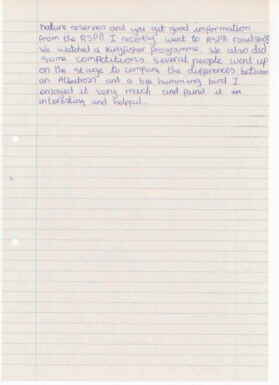 nature reserves and you get good information
from the RSPB I recently went to RSPB roadshow
We watched a kingfisher programme. We also did
some competitions several people went up
on the stage to compare the differences between
an Albatross and a bee humming bird I
enjoyed it very much and found it an
interesting and helpful.